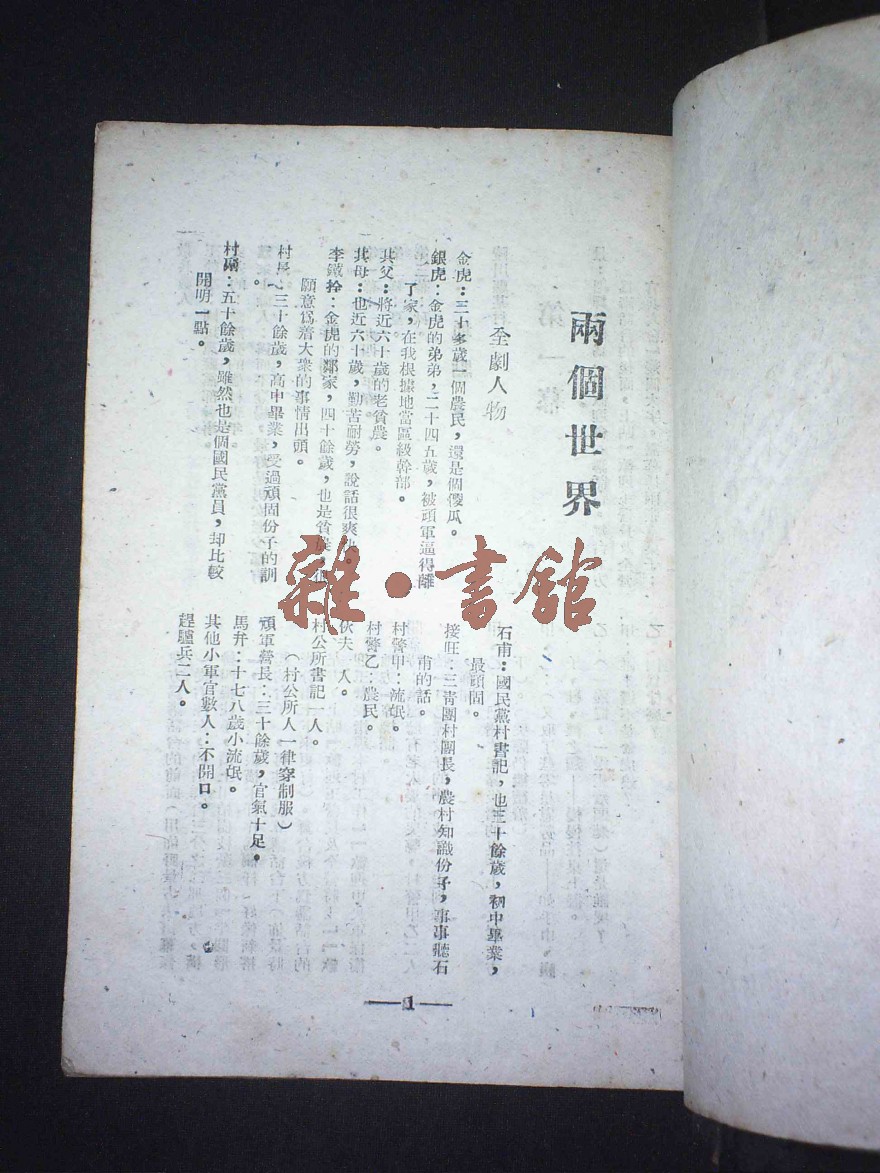 兩個世界
全劇人物
金虎：三十多歲一個農民，還是個傻瓜。
銀虎：金虎的弟弟，二十四五歲，被頑軍逼得離
了家，在我根據地當區級幹部。
其父：將近六十歲的老貧農。
其母：也近六十歲，勤苦耐勞，說話很爽
李鐵拴：金虎的鄰家，四十餘歲，也是貧農，
願意爲着大衆的事情出頭。
村長：三十餘歲，高中畢業，受過頑固份子的訓
。
村副：五十餘歲，雖然也是個國民黨員，却比較
開明一點。
石甫：國民黨村書記，也三十餘歲，初中畢業，
最頑固。
接旺：三青團村團長，農村知識份子，事事聽石
甫的話。
村警甲：流氓。
村警乙：農民。
伙夫一人。
村公所書記一人。
（村公所人一律穿制服）
頑軍營長：三十餘歲，官氣十足。
馬弁：十七八歲小流氓。
其他小軍官數人：不開口。
趕驢兵二人。
1
雜·書館